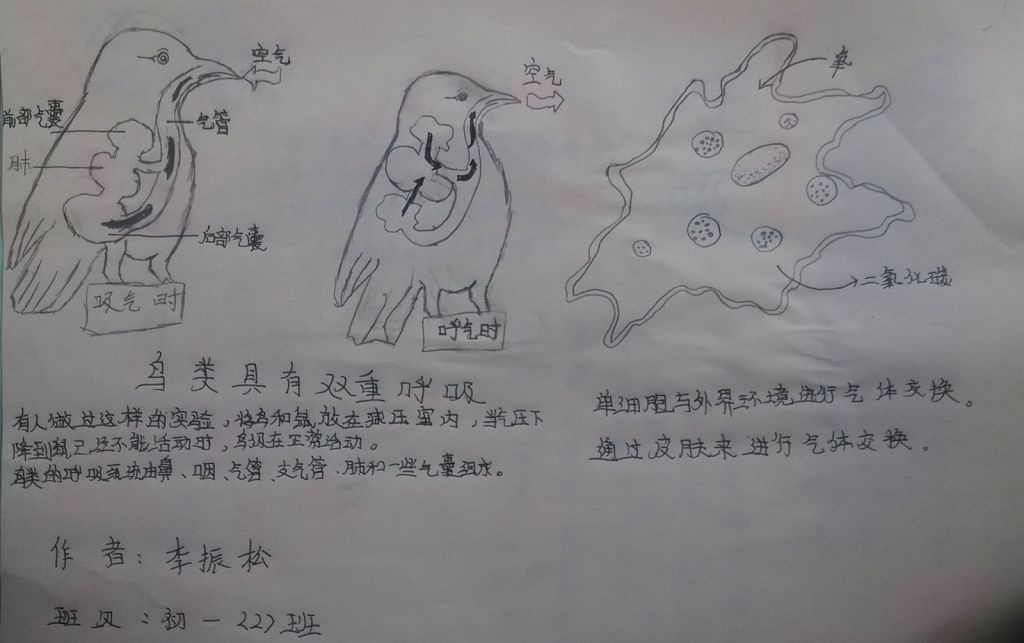 空气
前部气囊
气管
肺
后部气囊
吸气时
空气
呼气时
氧
二氧化碳
鸟类具有双重呼吸
有人做过这样的实验，将鸟和鼠放在减压室内，当气压下
降到鼠已还不能活动时，鸟仍在正常活动。
鸟类的呼吸系统由鼻、咽、气管、支气管、肺和一些气囊组成。
单细胞与外界环境进行气体交换。
通过皮肤来进行气体交换。
作者：李振松
班级：初一<22>班